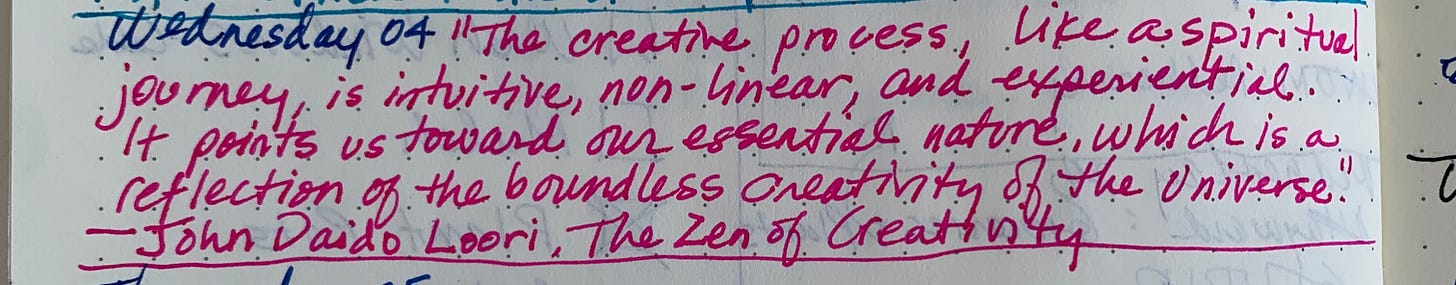 Wednesday 04 "The creative process, like a spiritual
journey, is intuitive, non-linear, and experiential.
It points us toward our essential nature, which is a
reflection of the boundless creativity of the Universe."
—John Daido Loori, The Zen of Creativity